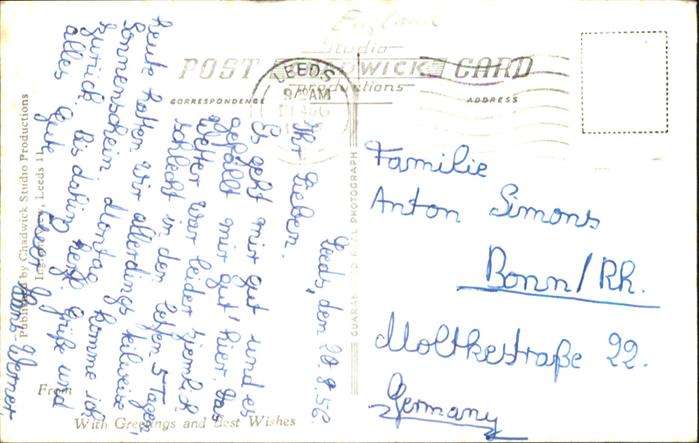 England
Studio
POST CHADWICK CARD
Productions
CORRESPONDENCE
ADDRESS
LEEDS
AM
Leeds, den 20.8.56.
Ihr Lieben.
Es geht mir gut und es
gefällt mir gut hier. Das
Wetter war leider ziemlich
schlecht in den letzten 5 Tagen,
heute hatten wir allerdings teilweise
Sonnenschein. Montag komme ich
zurück. Bis dahin herzl. Grüße und
alles Gute
Euer
Hans-Werner
Familie
Anton Simons
Bonn/Rh.
Moltkestraße 22.
Germany
Published by Chadwick Studio Productions
Leeds 11
PHOTOGRAPH
From
With Greetings and Best Wishes